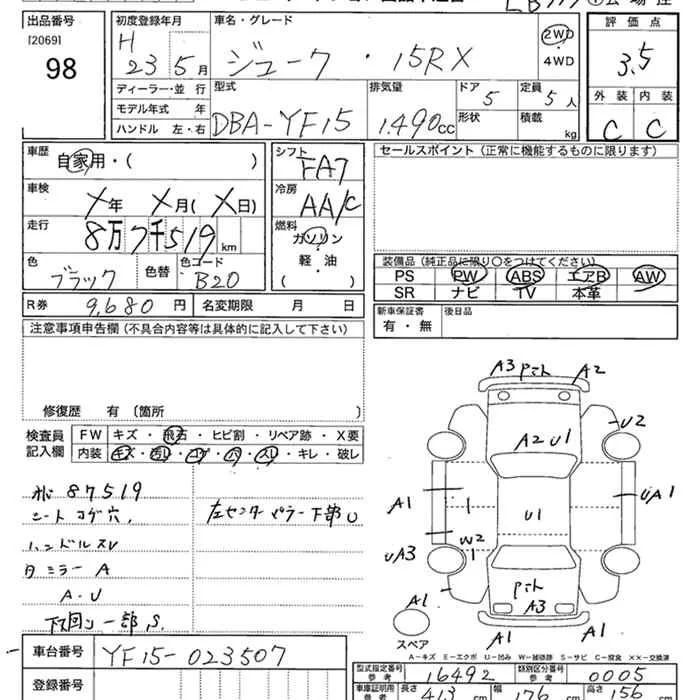 出品番号 初度登録年月 車名・グレード 評価点
[2069]
98
H 23 5月 ジューク・15RX 2WD 4WD 3.5
ディーラー・並行 型式 排気量 ドア 定員 外装 内装
モデル年式 年 DBA-YF15 1.490cc 5 5人 C C
ハンドル 左・右 形状 積載 kg
車歴 自家用・( ) シフト FA7 セールスポイント (正常に機能するものに限ります)
車検 X年 X月(X日) 冷房 AA/C
走行 8万7千519km 燃料 ガソリン
軽・油
( )
色 ブラック 色替 色コード B20
装備品 (純正品に限り○をつけてください)
PS PW ABS エアB AW
SR ナビ TV 本革
R券 9,680円 名変期限 月 日 新車保証書 有・無 後日品
注意事項申告欄 (不具合内容等は具体的に記入して下さい)
修復歴 有 〔箇所 〕
検査員記入欄 FW キズ・飛石・ヒビ割・リペア跡・X要
内装 キズ・汚レ・コゲ・穴・スレ・キレ・破レ
87519
シートコゲ穴,
ハンドルスレ
ミラー A
A・U
下回り一部S.
左センターピラー下部U
A3 Pコト A2
A2 U1
U2
A1 1 U1 UA1
UA3 W2 1
Pコト A3
A1 A1 A1
スペア
A-キズ E-エクボ U-凹み W-補修跡 S-サビ C-腐食 ××-交換済
車台番号 YF15-023507
登録番号
型式指定番号 参考 16492 類別区分番号 参考 0005
車庫証明用 参考 長さ 413cm 幅 176cm 高さ 156